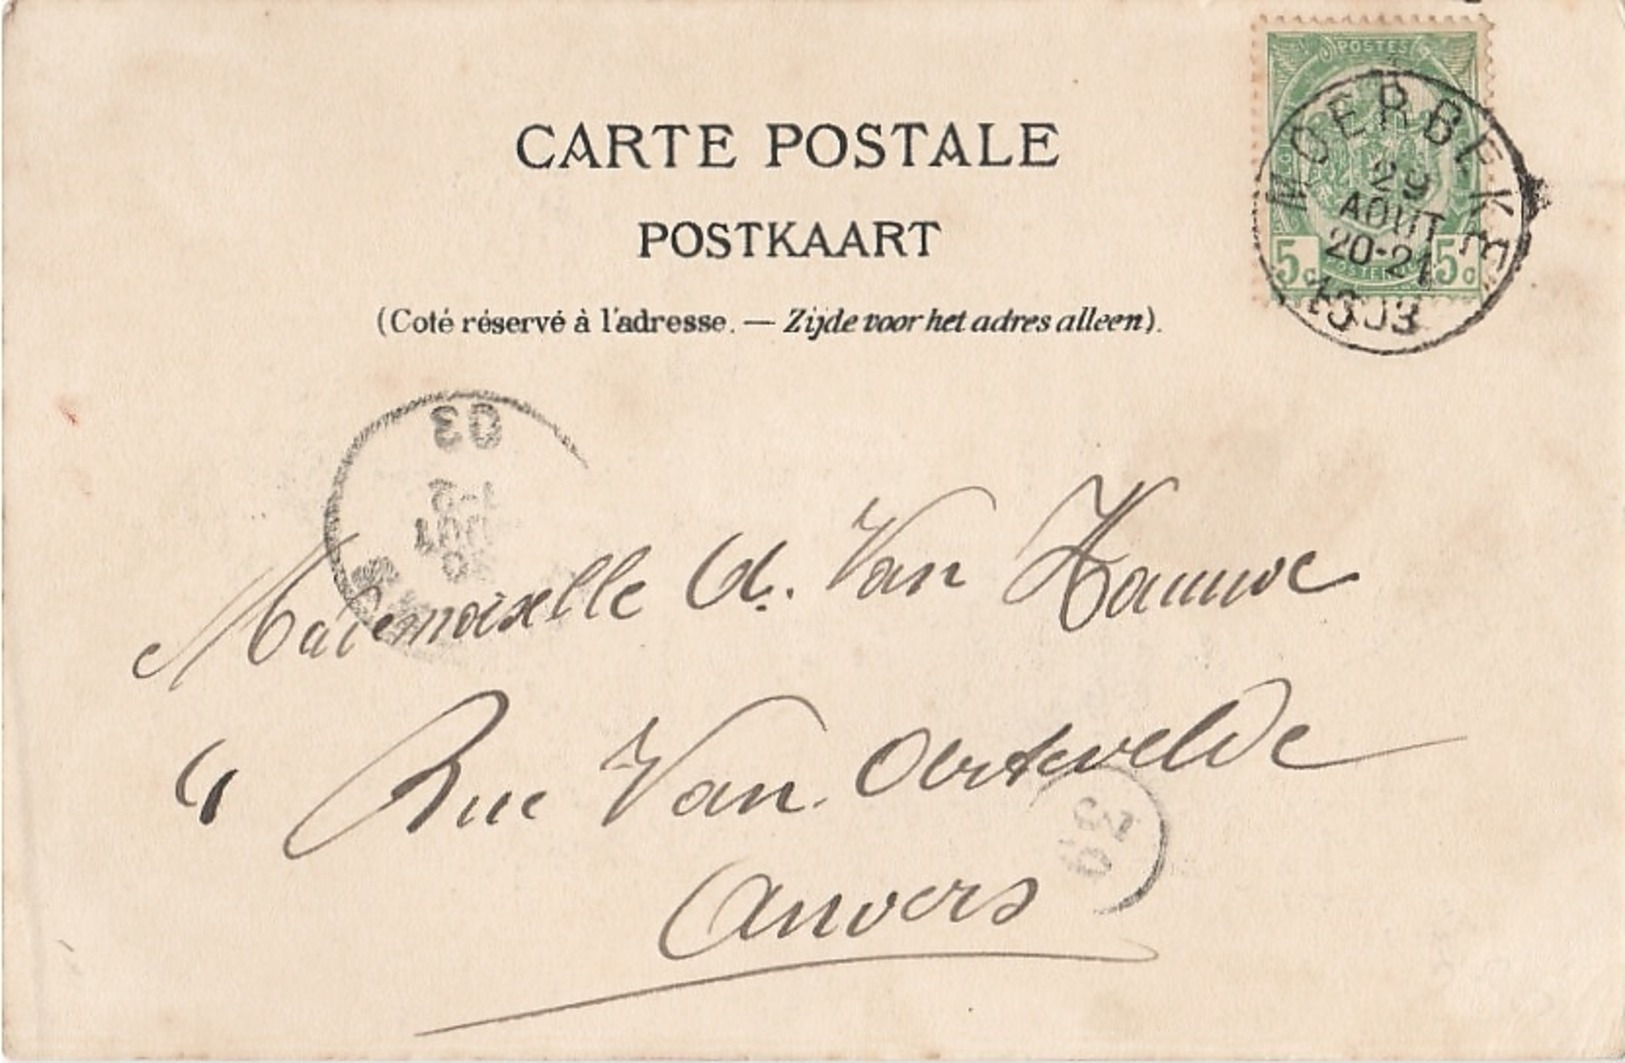 CARTE POSTALE
POSTKAART
(Coté réservé à l'adresse. — Zijde voor het adres alleen).
POSTES
5c 5c
MOERBEKE
29
AOUT
20-21
1903
03
1-2
Mademoiselle Van
Rue Van Artevelde
Anvers
39